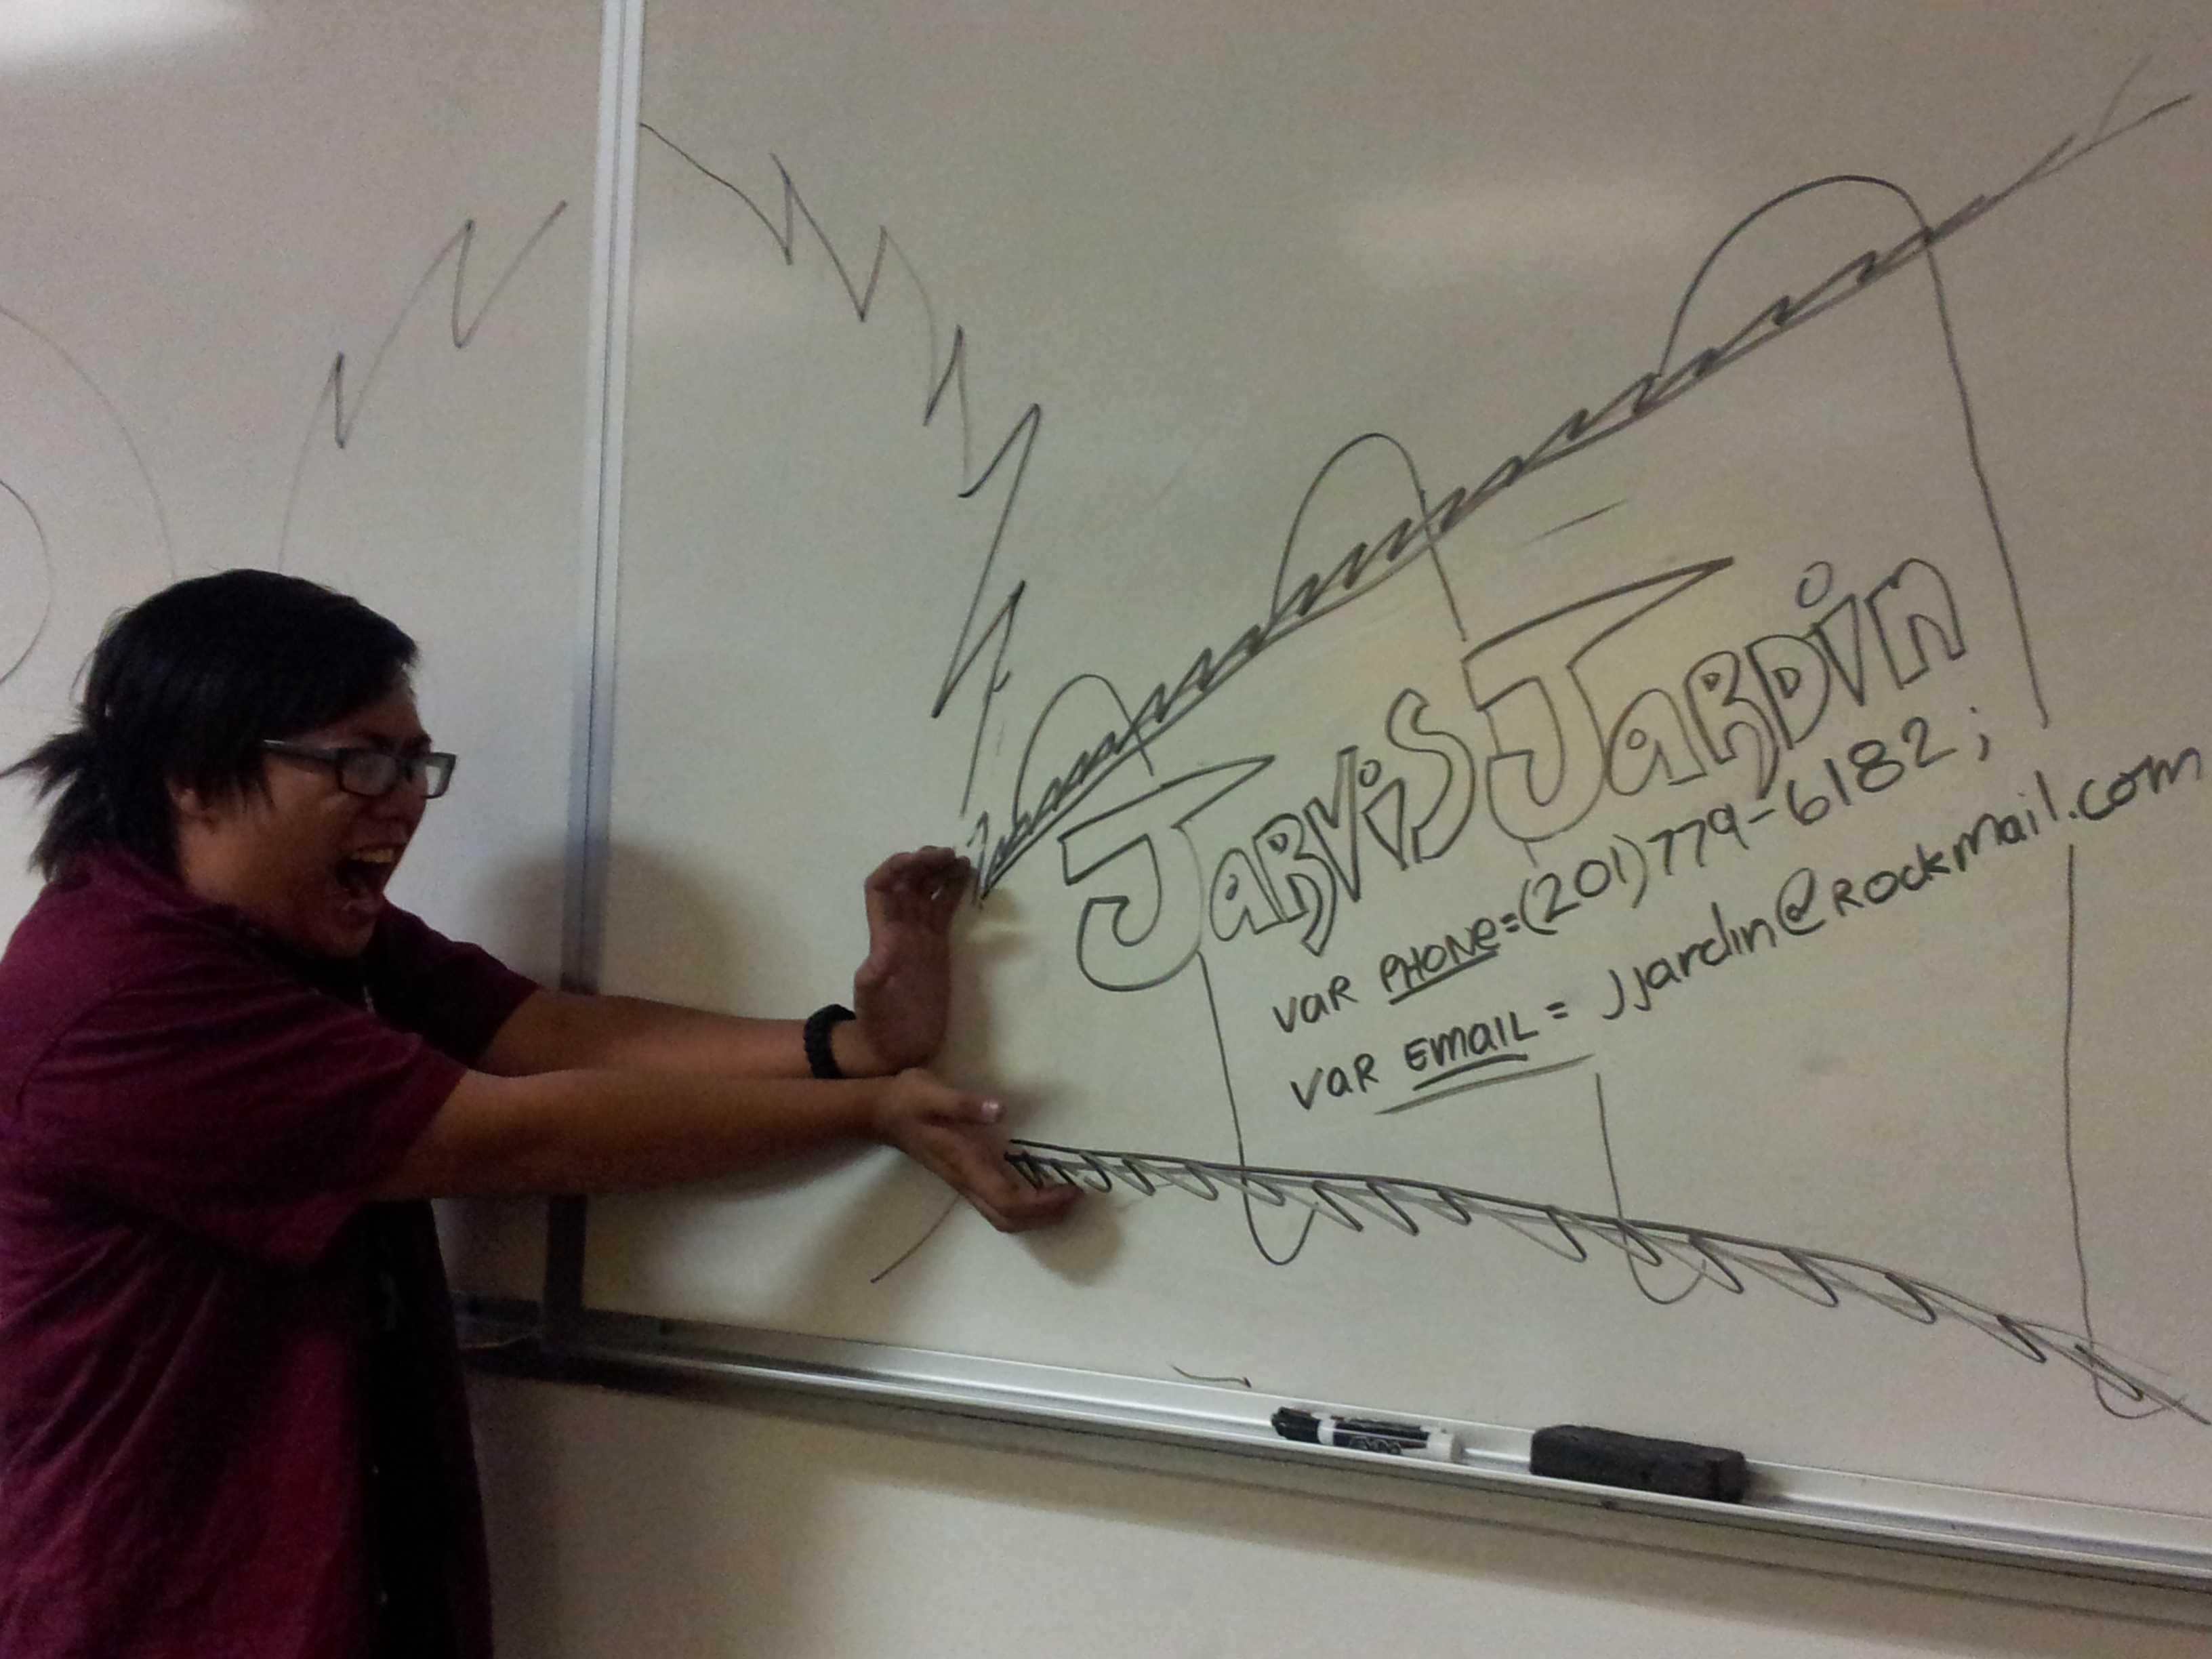 JaRViS JaRDin
VaR PHONe=(201)779-6182;
VaR Email = jjardin@Rockmail.com